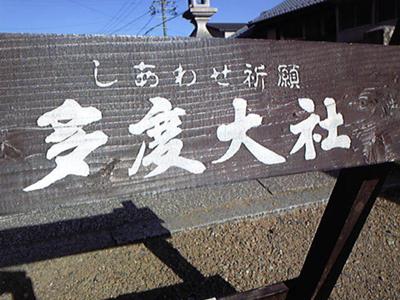 しあわせ祈願
多度大社